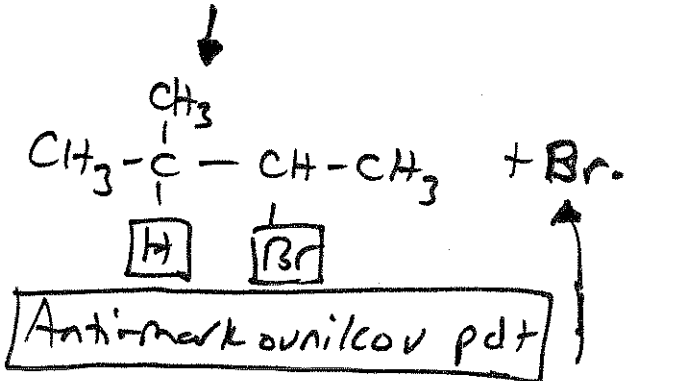 CH3
CH3 - C - CH - CH3 + Br.
H Br
Anti-markovnikov pdt